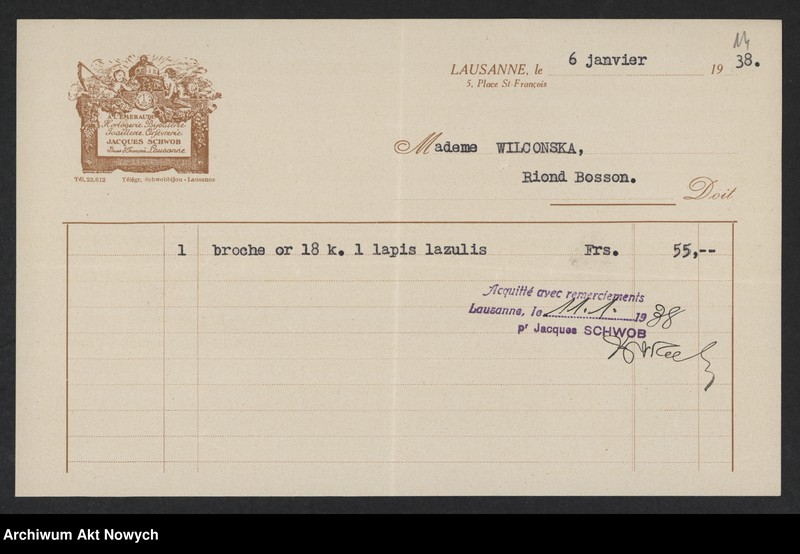 14
LAUSANNE, le 6 janvier 1938.
5, Place St-François
A L'EMERAUDE
Horlogerie. Bijouterie
Joaillerie. Orfèvrerie.
JACQUES SCHWOB
Place St François Lausanne
Tél. 23.612 Télégr. Schwobbijou - Lausanne
Mademe WILCONSKA,
Riond Bosson.
Doit
1 broche or 18 k. 1 lapis lazulis Frs. 55,--
Acquitté avec remerciements
Lausanne, le 11.1. 1938
pr Jacques SCHWOB
Archiwum Akt Nowych